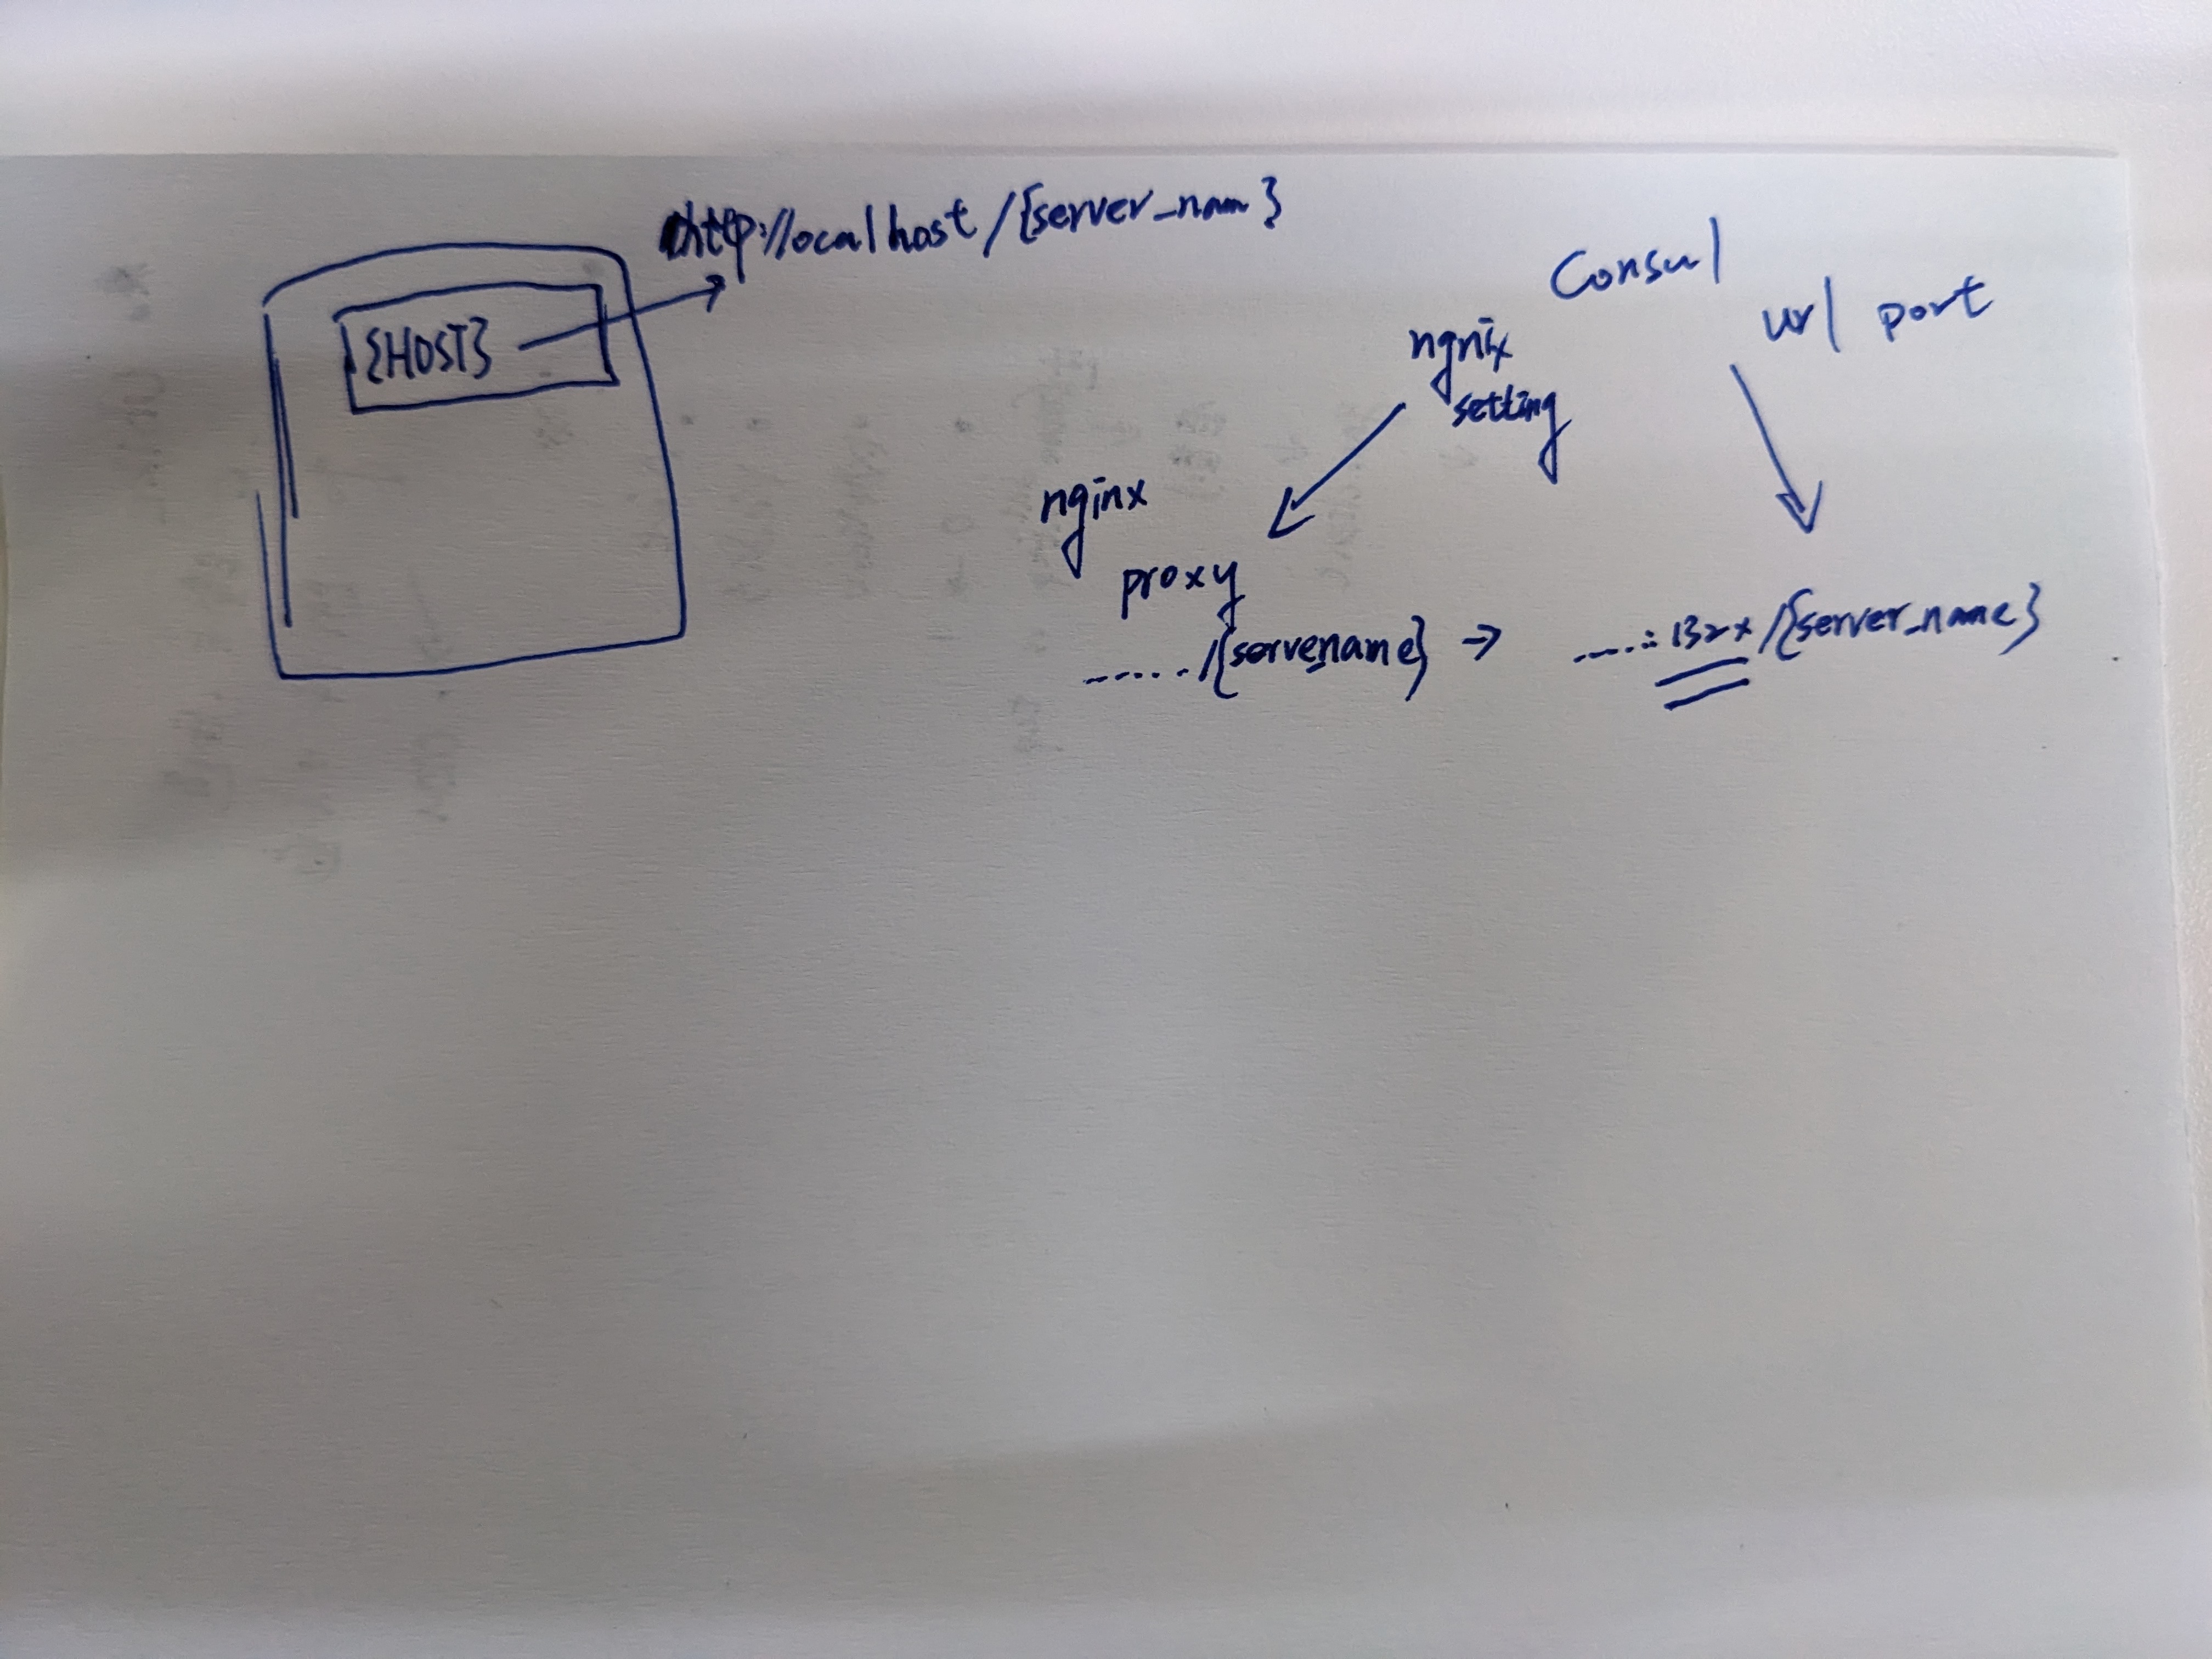 http://localhost/{server_nam}
{HOST}
Consul
url port
ngnix
setting
nginx
proxy
....../{servename} → .....:132x/{server_name}